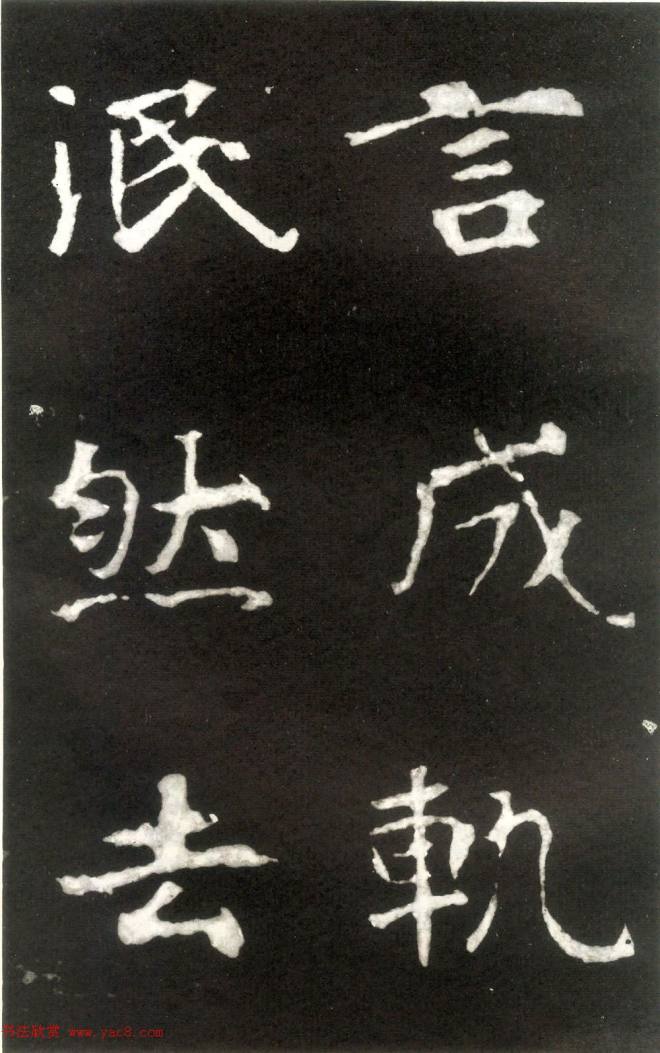 言成軌
泯然去
书法欣赏 www.yac8.com